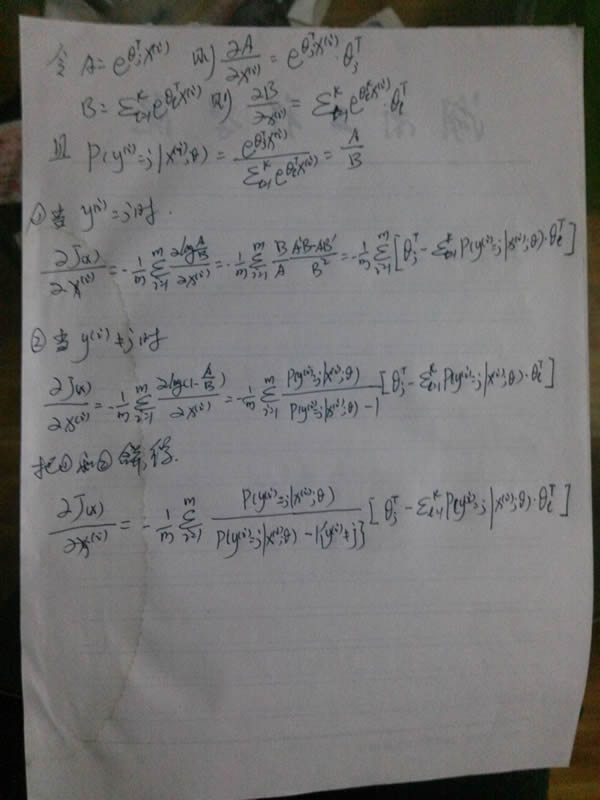 令 A = e^{θ_j^T x^{(i)}} 则 ∂A/∂x^{(i)} = e^{θ_j^T x^{(i)}} · θ_j^T
B = Σ_{l=1}^k e^{θ_l^T x^{(i)}} 则 ∂B/∂x^{(i)} = Σ_{l=1}^k e^{θ_l^T x^{(i)}} · θ_l^T
且 P(y^{(i)}=j|x^{(i)};θ) = e^{θ_j^T x^{(i)}} / Σ_{l=1}^k e^{θ_l^T x^{(i)}} = A/B
① 当 y^{(i)}=j 时.
∂J(x)/∂x^{(i)} = -1/m Σ_{i=1}^m ∂log(A/B)/∂x^{(i)} = -1/m Σ_{i=1}^m B/A (A'B-AB')/B^2 = -1/m Σ_{i=1}^m [θ_j^T - Σ_{l=1}^k P(y^{(i)}=j|x^{(i)};θ)·θ_l^T]
② 当 y^{(i)}≠j 时
∂J(x)/∂x^{(i)} = -1/m Σ_{i=1}^m ∂log(1-A/B)/∂x^{(i)} = -1/m Σ_{i=1}^m P(y^{(i)}=j|x^{(i)};θ) / (P(y^{(i)}=j|x^{(i)};θ)-1) [θ_j^T - Σ_{l=1}^k P(y^{(i)}=j|x^{(i)};θ)·θ_l^T]
把①和② 得.
∂J(x)/∂x_j^{(i)} = -1/m Σ_{i=1}^m P(y^{(i)}=j|x^{(i)};θ) / (P(y^{(i)}=j|x^{(i)};θ)-1{y^{(i)}≠j}) [θ_j^T - Σ_{l=1}^k P(y^{(i)}=j|x^{(i)};θ)·θ_l^T]